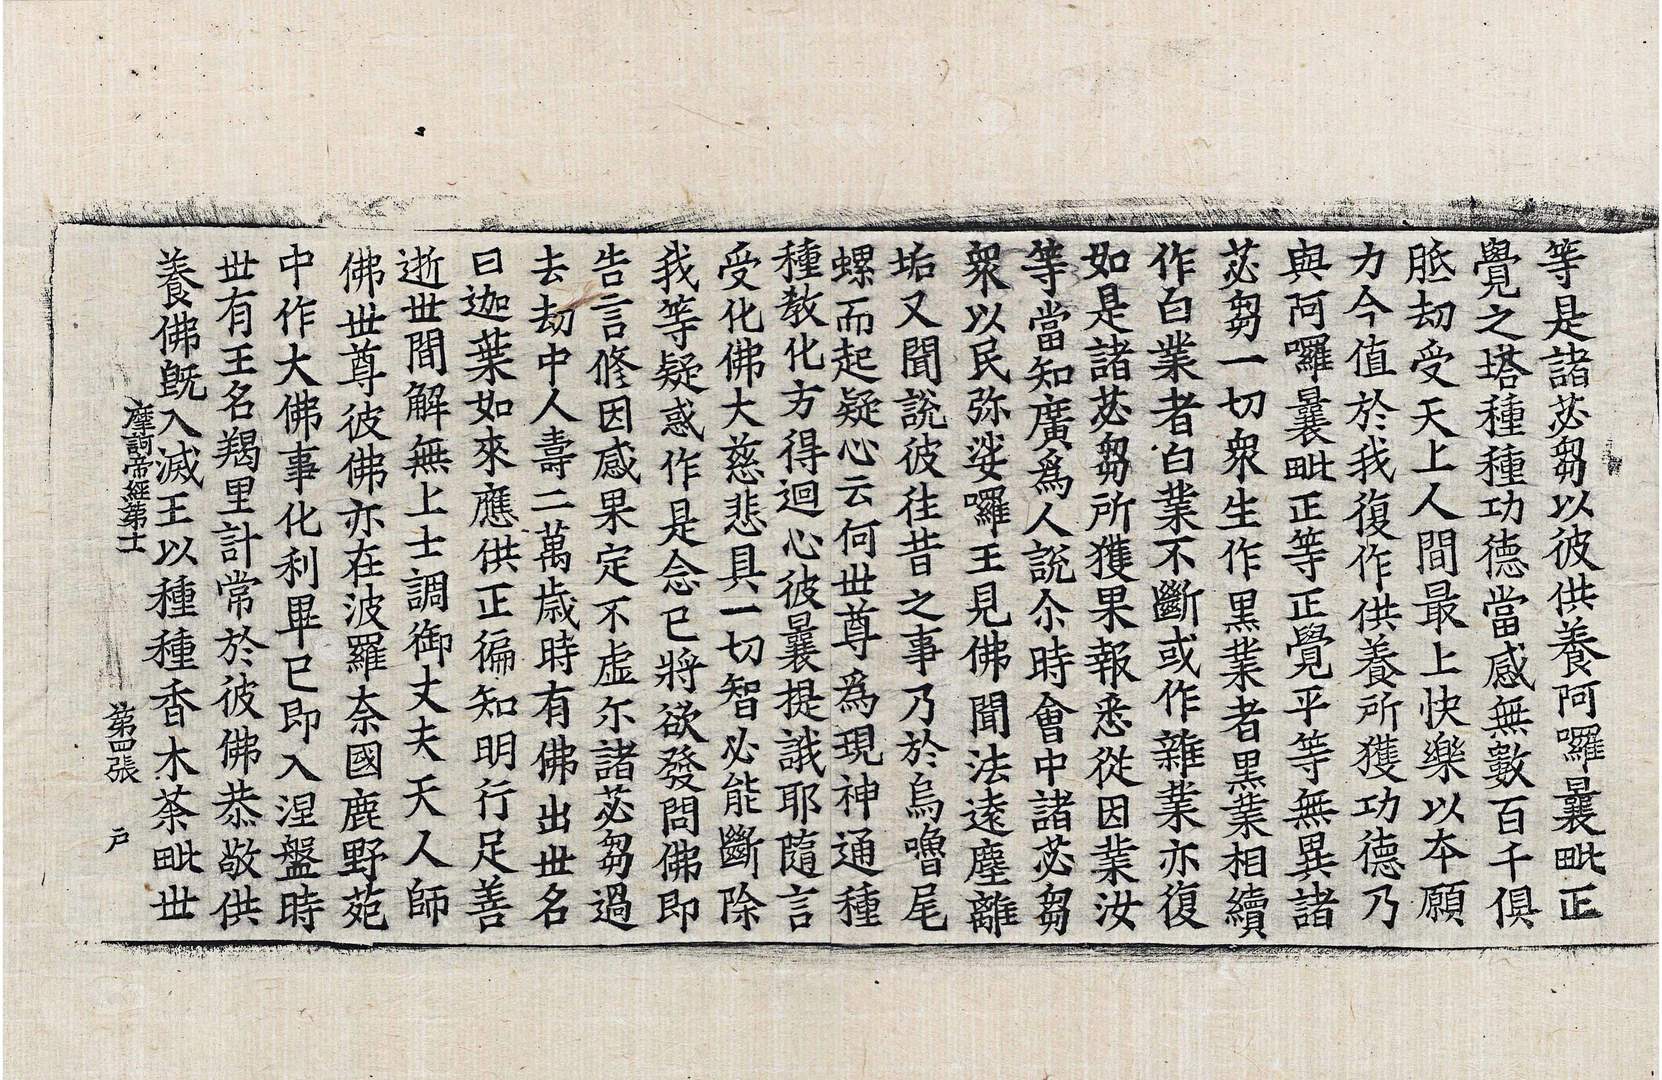 等是諸苾芻以彼供養阿囉曩毗正
覺之塔種種功德當感無數百千俱
胝劫受天上人間最上快樂以本願
力今值於我復作供養所獲功德乃
與阿囉曩毗正等正覺平等無異諸
苾芻一切衆生作黑業者黑業相續
作白業者白業不斷或作雜業亦復
如是諸苾芻所獲果報悉從因業汝
等當知廣爲人說尒時會中諸苾芻
衆以民弥娑囉王見佛聞法遠塵離
垢又聞說彼往昔之事乃於烏嚕尾
螺而起疑心云何世尊爲現神通種
種教化方得迴心彼曩提誐耶隨言
受化佛大慈悲具一切智必能斷除
我等疑惑作是念已將欲發問佛即
告言修因感果定不虛尒諸苾芻過
去劫中人壽二萬歳時有佛出世名
曰迦葉如來應供正徧知明行足善
逝世間解無上士調御丈夫天人師
佛世尊彼佛亦在波羅奈國鹿野苑
中作大佛事化利畢已即入涅盤時
世有王名羯里計常於彼佛恭敬供
養佛旣入滅王以種種香木茶毗世
摩訶帝經第士 第四張 戶